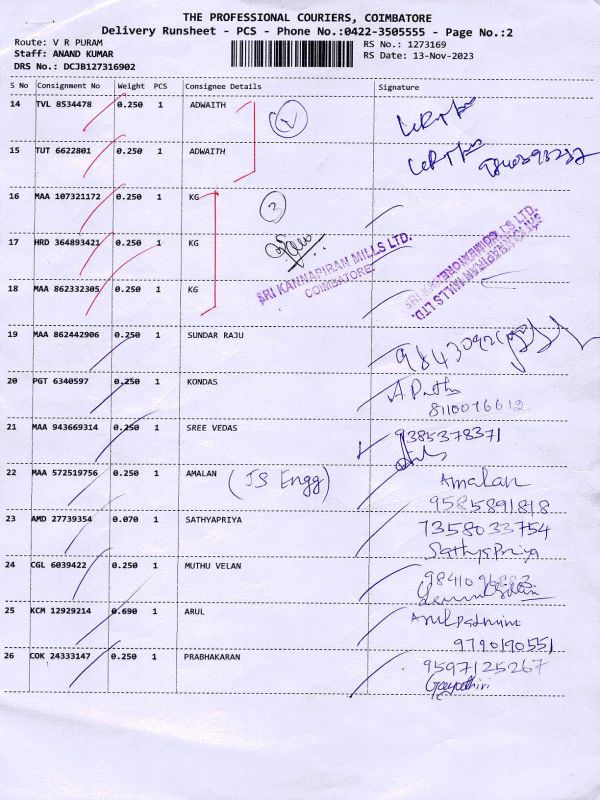 THE PROFESSIONAL COURIERS, COIMBATORE
Delivery Runsheet - PCS - Phone No.:0422-3505555 - Page No.:2
Route: V R PURAM
RS No.: 1273169
Staff: ANAND KUMAR
RS Date: 13-Nov-2023
DRS No.: DCJB127316902
S No Consignment No Weight PCS Consignee Details Signature
14 TVL 8534478 0.250 1 ADWAITH
1
15 TUT 6622801 0.250 1 ADWAITH
16 MAA 107321172 0.250 1 KG
2
17 HRD 364893421 0.250 1 KG
SRI KANNAPIRAN MILLS LTD.
COIMBATORE.
SRI KANNAPIRAN MILLS LTD.
COIMBATORE
18 MAA 862332305 0.250 1 KG
19 MAA 862442906 0.250 1 SUNDAR RAJU
20 PGT 6340597 0.250 1 KONDAS
8110076612
21 MAA 943669314 0.250 1 SREE VEDAS 9385378371
22 MAA 572519756 0.250 1 AMALAN (JS Engg) Amalan
9585891818
23 AMD 27739354 0.070 1 SATHYAPRIYA 7358033754
Sathya Priya
24 CGL 6039422 0.250 1 MUTHU VELAN
25 KCM 12929214 0.690 1 ARUL Arul Padmini
9790190551
26 COK 24333147 0.250 1 PRABHAKARAN 9597125267
Gayathiri